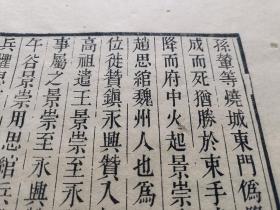 等燒城東門偽
成而死猶勝於束手
降而府中火起景崇
趙思綰魏州人也為
位徙贊鎮永興贊入
高祖遣王景崇至永
事屬之景崇至永興
午谷景崇用思綰兵
兵懼